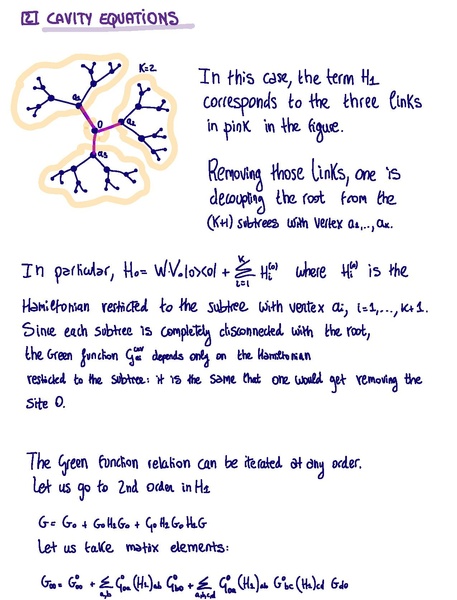 [2] CAVITY EQUATIONS
K=2
a₁
0
a₂
a₃
In this case, the term H1
corresponds to the three links
in pink in the figure.
Removing those links, one is
decoupling the root from the
(K+1) subtrees with vertex a₁,..,aₖ.
In particular, H₀ = W·V₀|0><0| + Σ_{i=1}^{K} Hᵢ⁽ᵒ⁾ where Hᵢ⁽ᵒ⁾ is the
Hamiltonian restricted to the subtree with vertex aᵢ, i=1,..., K+1.
Since each subtree is completely disconnected with the root,
the Green function G^{cav} depends only on the Hamiltonian
restricted to the subtree: it is the same that one would get removing the
site 0.
The Green function relation can be iterated at any order.
Let us go to 2nd order in H1
G = G₀ + G₀H₁G₀ + G₀H₁G₀H₁G
Let us take matrix elements:
G₀₀ = G⁰₀₀ + Σ_{a,b} G⁰₀ₐ (H₁)ab G⁰b₀ + Σ_{a,b,c,d} G⁰₀ₐ (H₁)ab G⁰bc (H₁)cd Gd₀